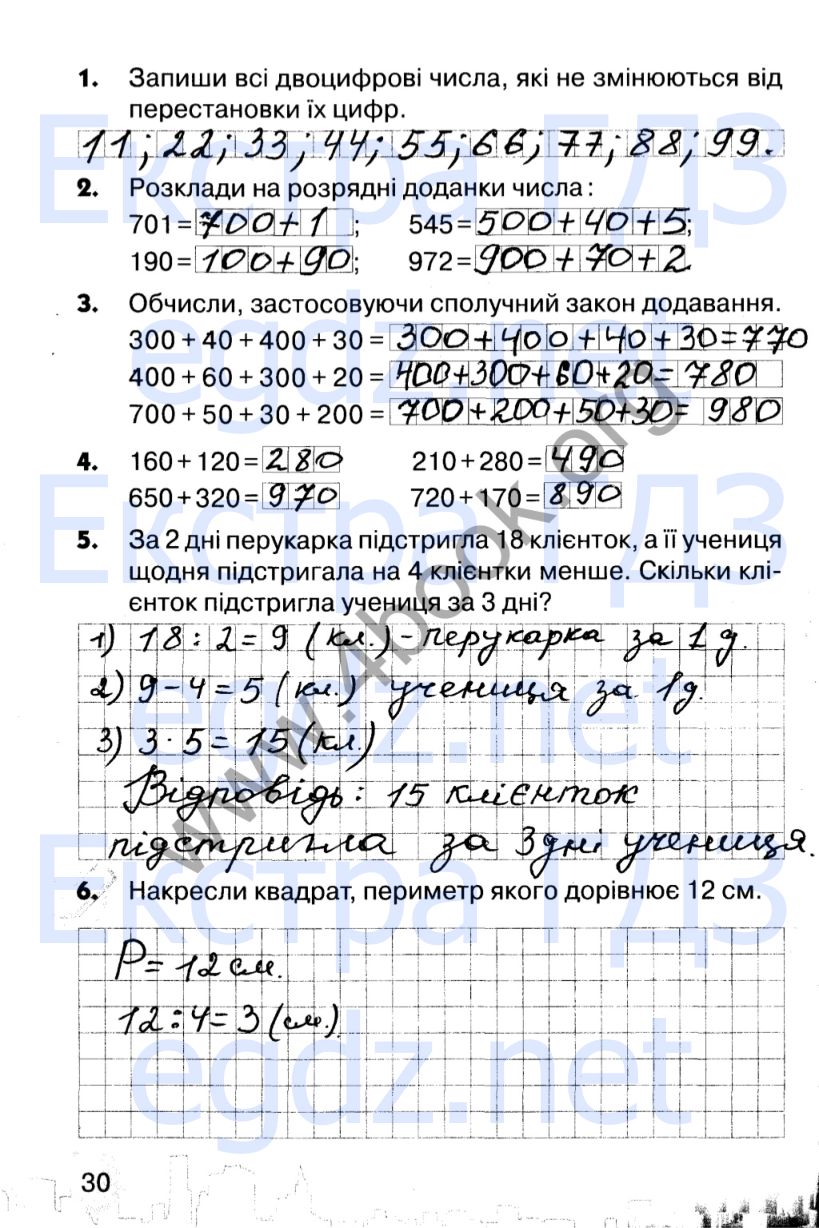 1. Запиши всі двоцифрові числа, які не змінюються від
перестановки їх цифр.
11; 22; 33; 44; 55; 66; 77; 88; 99.
2. Розклади на розрядні доданки числа:
701 = 700+1; 545 = 500+40+5;
190 = 100+90; 972 = 900+70+2
3. Обчисли, застосовуючи сполучний закон додавання.
300 + 40 + 400 + 30 = 300+400+40+30=770
400 + 60 + 300 + 20 = 400+300+60+20=780
700 + 50 + 30 + 200 = 700+200+50+30= 980
4. 160 + 120 = 280 210 + 280 = 490
650 + 320 = 970 720 + 170 = 890
5. За 2 дні перукарка підстригла 18 клієнток, а її учениця
щодня підстригала на 4 клієнтки менше. Скільки клі-
єнток підстригла учениця за 3 дні?
1) 18 : 2 = 9 (кл.) - перукарка за 1 д.
2) 9 - 4 = 5 (кл.) учениця за 1д.
3) 3 · 5 = 15 (кл.)
Відповідь: 15 клієнток
підстригла за 3 дні учениця.
6. Накресли квадрат, периметр якого дорівнює 12 см.
P = 12 см.
12 : 4 = 3 (см.)
30
Екстра ГДЗ
egdz.net
Екстра ГДЗ
egdz.net
Екстра ГДЗ
egdz.net
www.4book.org